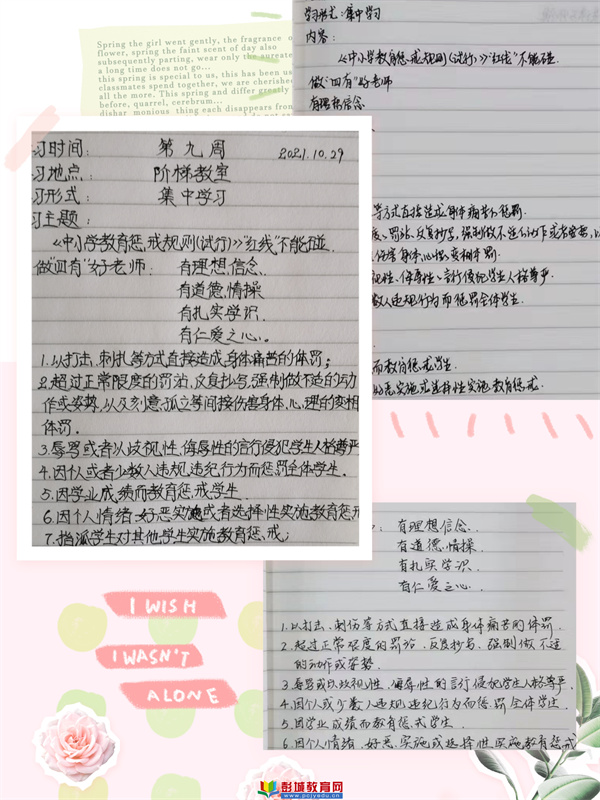 Spring the girl went gently, the fragrance o
flower, spring the faint scent of day also
subsequently parting, wear only the aureate
a long time does not go...
this spring is special to us, this has been us
classmates spend together, we are cherished
all the more. This spring and differ greatly
before, quarrel, cerebrum...
disharmonious thing each disappears from
学习形式:集中学习
内容:
《中小学教育惩戒规则(试行)》"红线"不能碰.
做"四有"好老师
有理想信念
等方式直接造成身体痛苦的体罚.
罚站、反复抄写,强制做不适的动作或者姿势,以
伤害身体、心理、变相体罚.
视性、侮辱性、言行侵犯学生人格尊严
数人违规行为而惩罚全体学生.
而教育惩戒学生.
恶实施或选择性实施教育惩戒.
习时间: 第九周 2021.10.29
习地点: 阶梯教室
习形式: 集中学习
习主题:
《中小学教育惩戒规则(试行)》"红线"不能碰.
做"四有"好老师: 有理想、信念、
有道德、情操
有扎实学识.
有仁爱之心.
1.以打击、刺扎等方式直接造成身体痛苦的体罚;
2.超过正常限度的罚站,反复抄写,强制做不适的动
作或姿势,以及刻意孤立等间接伤害身体、心理的变相
体罚.
3.辱骂或者以歧视性、侮辱性的言行侵犯学生人格尊严
4.因个人或者少数人违规违纪行为而惩罚全体学生.
5.因学业成绩而教育惩戒学生.
6.因个人情绪、好恶实施或者选择性实施教育惩戒
7.指派学生对其他学生实施教育惩戒;
: 有理想信念、
有道德情操、
有扎实学识、
有仁爱之心.
1.以打击、刺伤等方式直接造成身体痛苦的体罚.
2.超过正常限度的罚站、反复抄写、强制做不适
的动作或姿势.
3.辱骂或以歧视性、侮辱性的言行侵犯学生人格尊严.
4.因个人或少数人违规违纪行为而惩罚全体学生
5.因学业成绩而教育惩戒学生
6.因个人情绪、好恶、实施或选择性实施教育惩戒
I WISH
I WASN'T
ALONE
彭城教育网
www.pcjyedu.cn